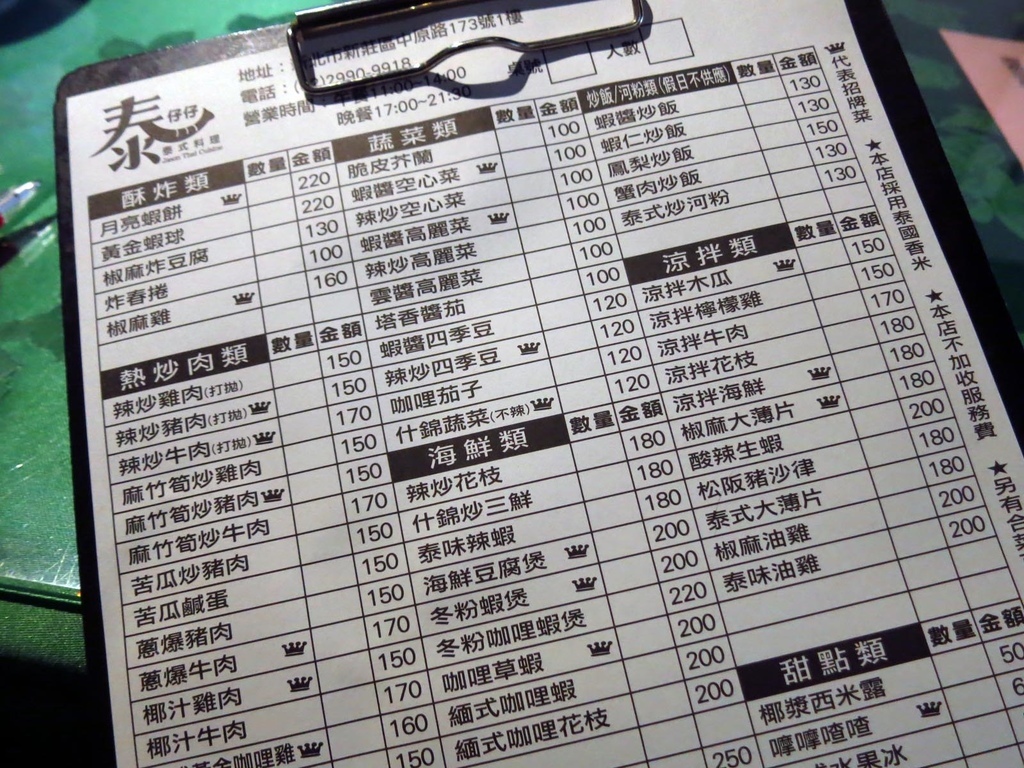 地址：北市新莊區中原路173號1樓
電話：()2990-9918
營業時間：午餐11:00~14:00
晚餐17:00~21:30
桌號 人數
泰 仔仔
泰式料理
Jason Thai Cuisine
酥炸類 數量 金額
月亮蝦餅 220
黃金蝦球 220
椒麻炸豆腐 130
炸春捲 100
椒麻雞 160
熱炒肉類 數量 金額
辣炒雞肉(打拋) 150
辣炒豬肉(打拋) 150
辣炒牛肉(打拋) 170
麻竹筍炒雞肉 150
麻竹筍炒豬肉 150
麻竹筍炒牛肉 170
苦瓜炒豬肉 150
苦瓜鹹蛋 150
蔥爆豬肉 150
蔥爆牛肉 170
椰汁雞肉 150
椰汁牛肉 170
黃金咖哩雞 160
150
蔬菜類 數量 金額
脆皮芥蘭 100
蝦醬空心菜 100
辣炒空心菜 100
蝦醬高麗菜 100
辣炒高麗菜 100
雲醬高麗菜 100
塔香醬茄 100
蝦醬四季豆 120
辣炒四季豆 120
咖哩茄子 120
什錦蔬菜(不辣) 120
海鮮類 數量 金額
辣炒花枝 180
什錦炒三鮮 180
泰味辣蝦 180
海鮮豆腐煲 200
冬粉蝦煲 200
冬粉咖哩蝦煲 220
咖哩草蝦 200
緬式咖哩蝦 200
緬式咖哩花枝 200
250
炒飯/河粉類(假日不供應) 數量 金額
蝦醬炒飯 130
蝦仁炒飯 130
鳳梨炒飯 150
蟹肉炒飯 130
泰式炒河粉 130
涼拌類 數量 金額
涼拌木瓜 150
涼拌檸檬雞 150
涼拌牛肉 170
涼拌花枝 180
涼拌海鮮 180
椒麻大薄片 180
酸辣生蝦 200
松阪豬沙律 180
泰式大薄片 180
椒麻油雞 200
泰味油雞 200
甜點類 數量 金額
椰漿西米露 50
嚤嚤喳喳 6
水果冰
代表招牌菜 ★本店採用泰國香米 ★本店不加收服務費 ★另有合菜